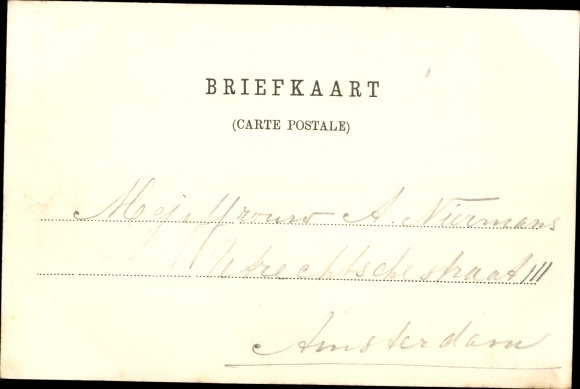 BRIEFKAART
(CARTE POSTALE)
Mejuffrouw A. Niermans
Utrechtschestraat 111
Amsterdam